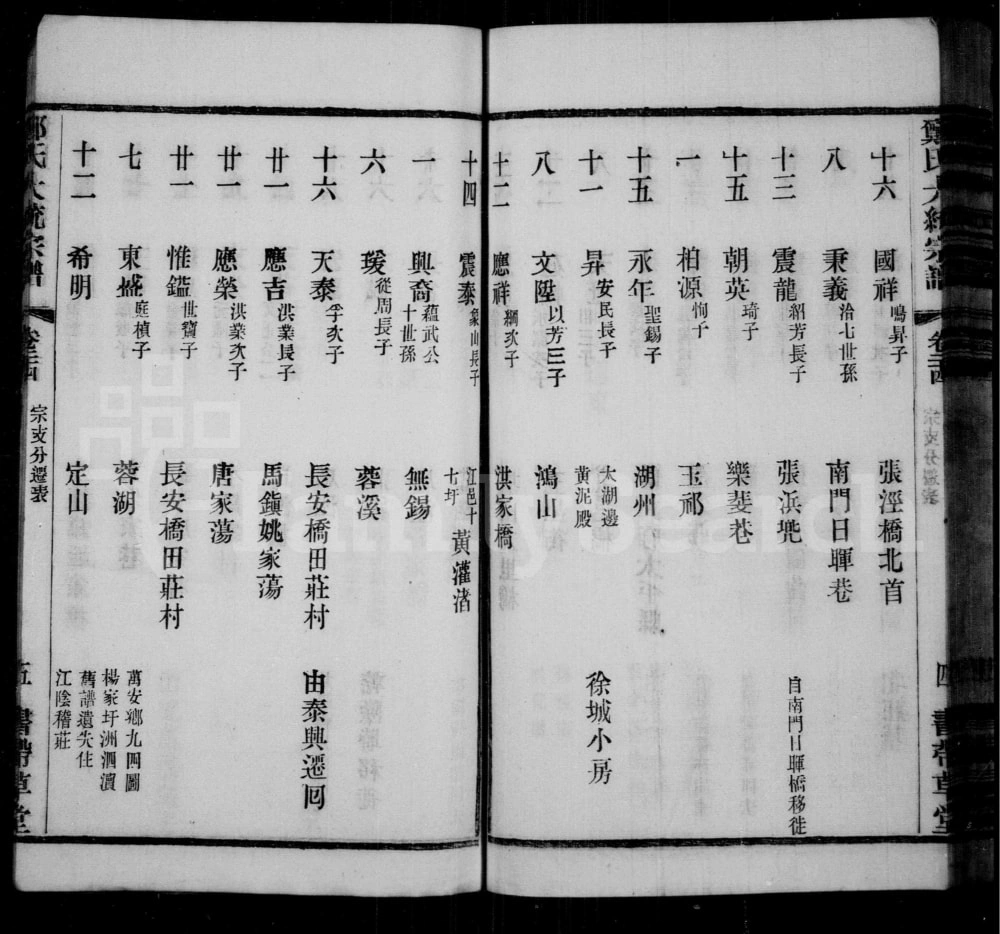 鄭氏大統宗譜 卷三四 宗支分遷表 四 書帶草堂
十六 國祥 鳴昇子 張涇橋北首
八 秉義 治七世孫 南門日暉巷
十三 震龍 紹芳長子 張浜兜 自南門日暉橋移徙
十五 朝英 琦子 樂斐巷
一 柏源 恂子 玉祁
十五 永年 聖錫子 湖州
十一 昇 安民長子 太湖邊黃泥殿 徐城小房
八 文陞 以芳三子 鴻山
十二 應祥 綱次子 洪家橋
十四 震泰 象山長子 江邑十七圩 黃灌渚
一 興裔 蘊武公十世孫 無錫
六 瑗 從周長子 蓉溪
十六 天泰 孚次子 長安橋田莊村 由泰興遷回
廿一 應吉 洪業長子 馬鎭姚家蕩
廿一 應榮 洪業次子 唐家蕩
廿一 惟鑑 世寶子 長安橋田莊村
七 東盛 庭楨子 蓉湖 萬安鄉九四圖楊家圩洲泗瀆
十二 希明 定山 舊譜遺失住江陰稽莊
鄭氏大統宗譜 卷三四 宗支分遷表 五 書帶草堂